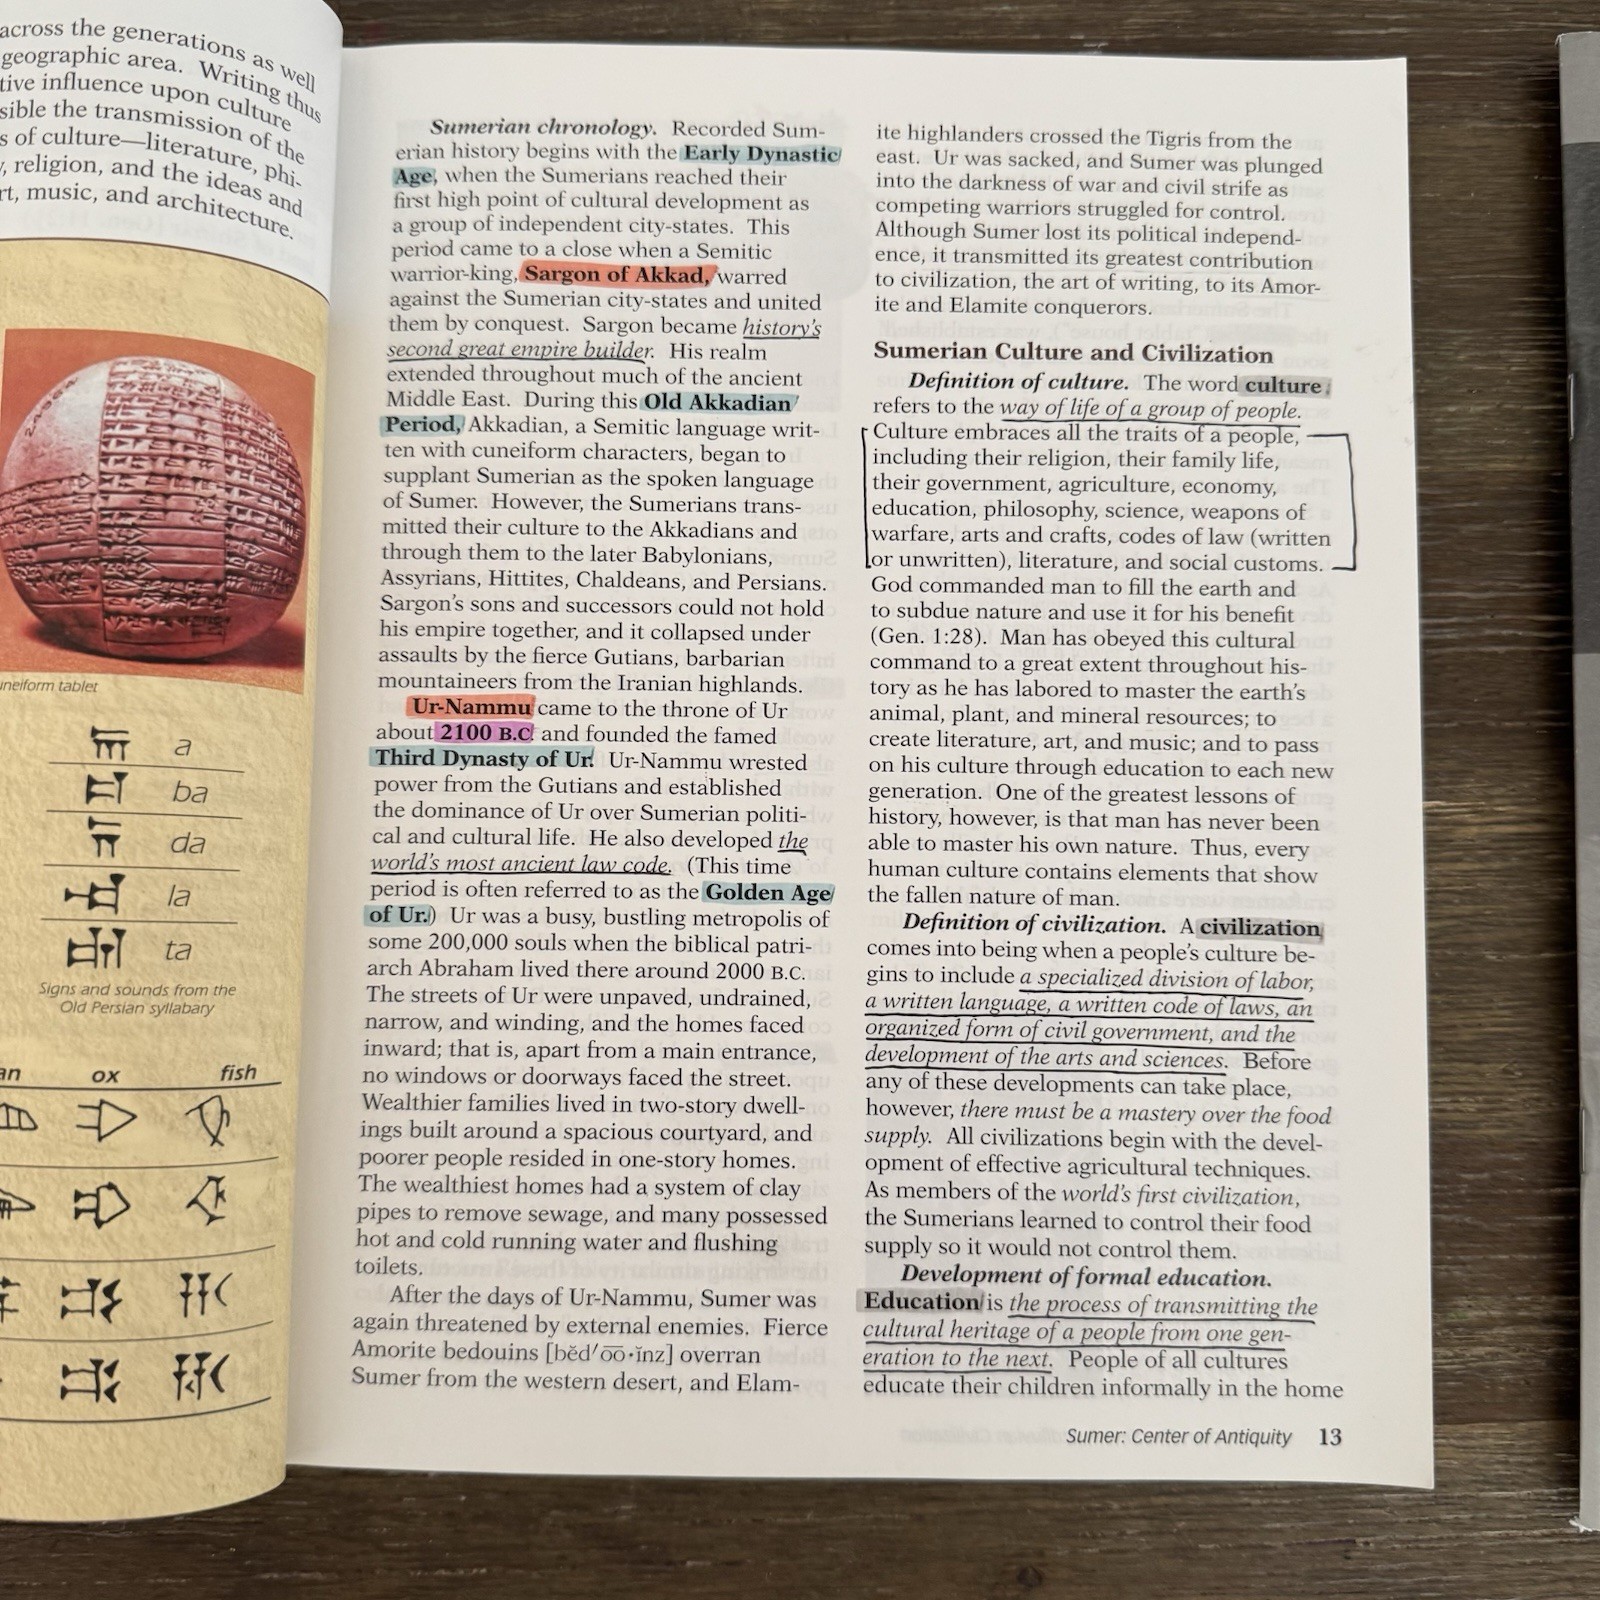 across the generations as well
geographic area. Writing thus
tive influence upon culture
sible the transmission of the
s of culture—literature, phi-
, religion, and the ideas and
rt, music, and architecture.
uneiform tablet
a
ba
da
la
ta
Signs and sounds from the
Old Persian syllabary
an ox fish
Sumerian chronology. Recorded Sum-
erian history begins with the Early Dynastic
Age, when the Sumerians reached their
first high point of cultural development as
a group of independent city-states. This
period came to a close when a Semitic
warrior-king, Sargon of Akkad, warred
against the Sumerian city-states and united
them by conquest. Sargon became history's
second great empire builder. His realm
extended throughout much of the ancient
Middle East. During this Old Akkadian
Period, Akkadian, a Semitic language writ-
ten with cuneiform characters, began to
supplant Sumerian as the spoken language
of Sumer. However, the Sumerians trans-
mitted their culture to the Akkadians and
through them to the later Babylonians,
Assyrians, Hittites, Chaldeans, and Persians.
Sargon's sons and successors could not hold
his empire together, and it collapsed under
assaults by the fierce Gutians, barbarian
mountaineers from the Iranian highlands.
Ur-Nammu came to the throne of Ur
about 2100 B.C. and founded the famed
Third Dynasty of Ur. Ur-Nammu wrested
power from the Gutians and established
the dominance of Ur over Sumerian politi-
cal and cultural life. He also developed the
world's most ancient law code. (This time
period is often referred to as the Golden Age
of Ur.) Ur was a busy, bustling metropolis of
some 200,000 souls when the biblical patri-
arch Abraham lived there around 2000 B.C.
The streets of Ur were unpaved, undrained,
narrow, and winding, and the homes faced
inward; that is, apart from a main entrance,
no windows or doorways faced the street.
Wealthier families lived in two-story dwell-
ings built around a spacious courtyard, and
poorer people resided in one-story homes.
The wealthiest homes had a system of clay
pipes to remove sewage, and many possessed
hot and cold running water and flushing
toilets.
After the days of Ur-Nammu, Sumer was
again threatened by external enemies. Fierce
Amorite bedouins [bĕd′o͞o·ĭnz] overran
Sumer from the western desert, and Elam-
ite highlanders crossed the Tigris from the
east. Ur was sacked, and Sumer was plunged
into the darkness of war and civil strife as
competing warriors struggled for control.
Although Sumer lost its political independ-
ence, it transmitted its greatest contribution
to civilization, the art of writing, to its Amor-
ite and Elamite conquerors.
Sumerian Culture and Civilization
Definition of culture. The word culture
refers to the way of life of a group of people.
Culture embraces all the traits of a people,
including their religion, their family life,
their government, agriculture, economy,
education, philosophy, science, weapons of
warfare, arts and crafts, codes of law (written
or unwritten), literature, and social customs.
God commanded man to fill the earth and
to subdue nature and use it for his benefit
(Gen. 1:28). Man has obeyed this cultural
command to a great extent throughout his-
tory as he has labored to master the earth's
animal, plant, and mineral resources; to
create literature, art, and music; and to pass
on his culture through education to each new
generation. One of the greatest lessons of
history, however, is that man has never been
able to master his own nature. Thus, every
human culture contains elements that show
the fallen nature of man.
Definition of civilization. A civilization
comes into being when a people's culture be-
gins to include a specialized division of labor,
a written language, a written code of laws, an
organized form of civil government, and the
development of the arts and sciences. Before
any of these developments can take place,
however, there must be a mastery over the food
supply. All civilizations begin with the devel-
opment of effective agricultural techniques.
As members of the world's first civilization,
the Sumerians learned to control their food
supply so it would not control them.
Development of formal education.
Education is the process of transmitting the
cultural heritage of a people from one gen-
eration to the next. People of all cultures
educate their children informally in the home
Sumer: Center of Antiquity 13